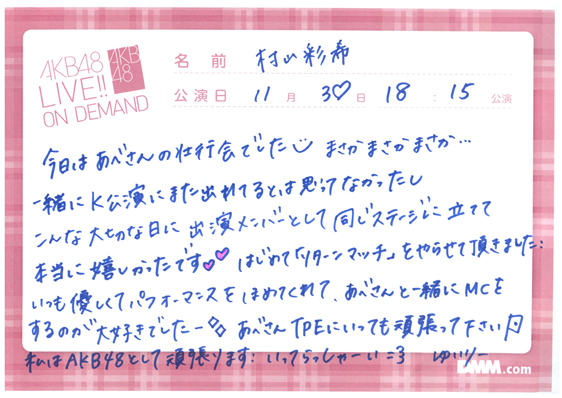 AKB48
LIVE!!
ON DEMAND
AKB
48
名前 村山彩希
公演日 11月 30日 18:15 公演
今日はあべさんの壮行会でした まさかまさかまさか…
一緒にK公演にまた出れてるとは思ってなかったし
こんな大切な日に出演メンバーとして同じステージに立てて
本当に嬉しかったです♥♥ はじめて「リターンマッチ」をやらせて頂きました:
いつも優しくてパフォーマンスをほめてくれて、あべさんと一緒にMCを
するのが大好きでしたー あべさんTPEにいっても頑張って下さい
私はAKB48として頑張ります: いってらっしゃーい=3 ゆいりー
DMM.com